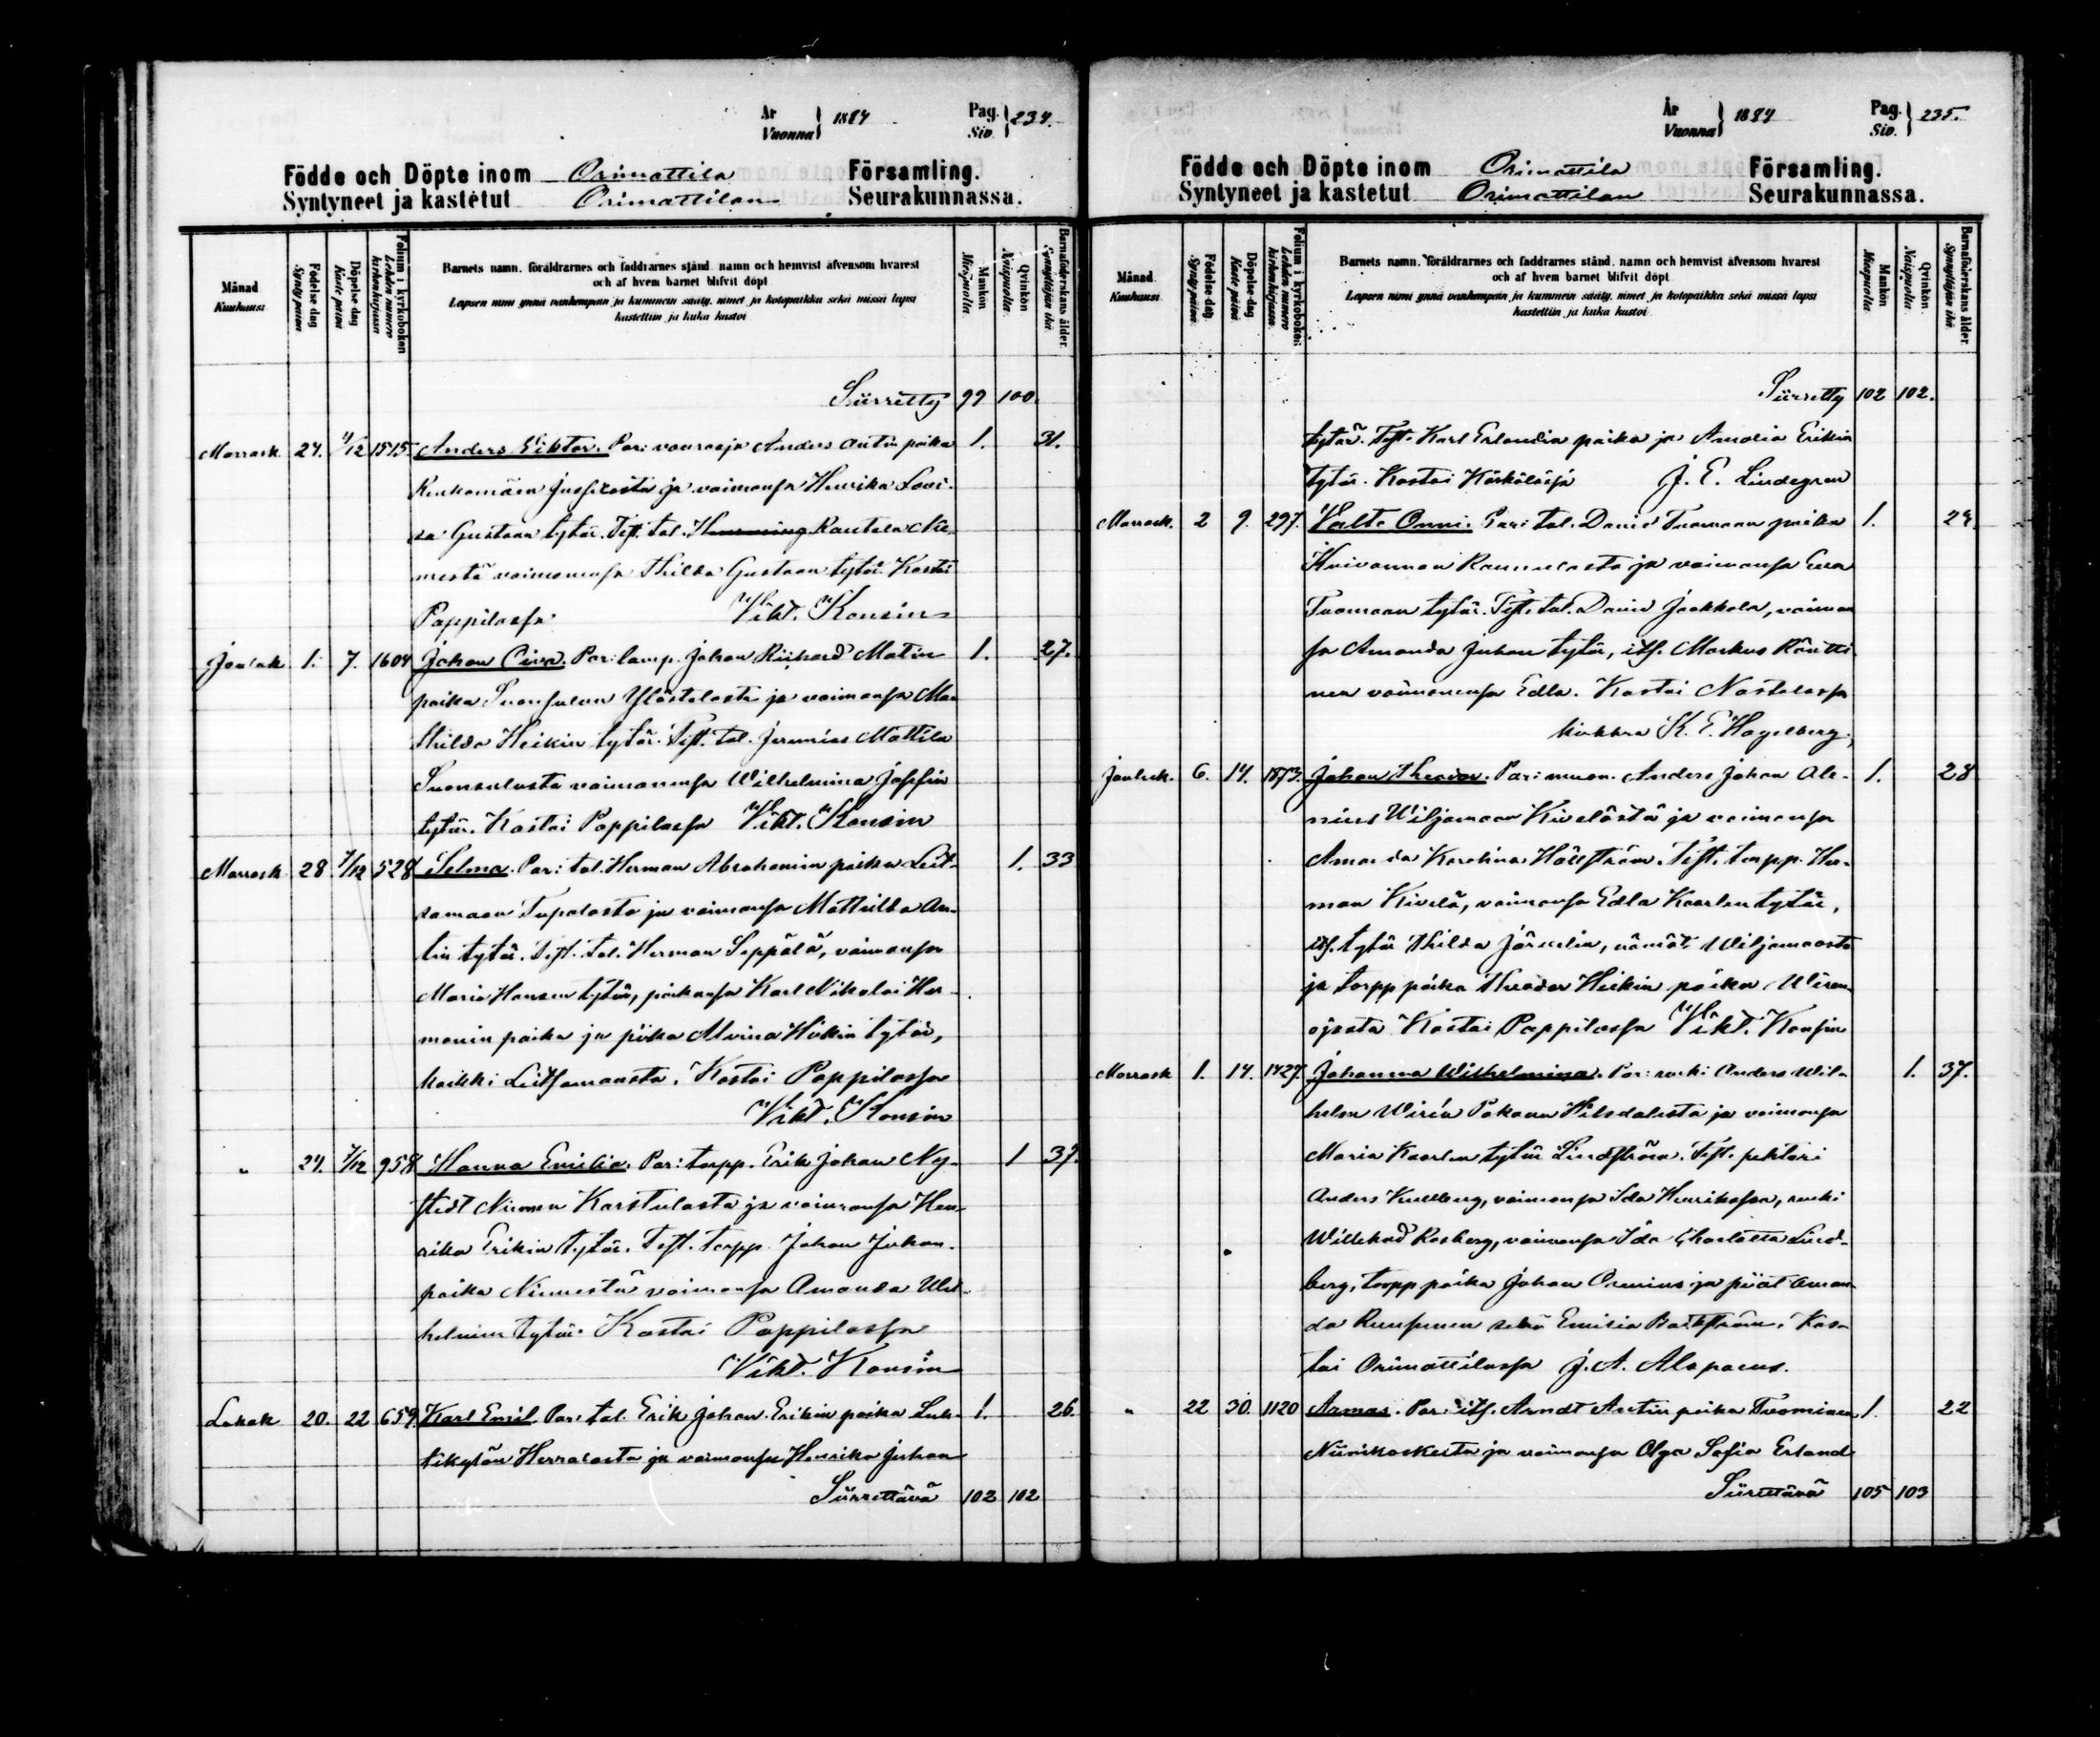 År
Vuonna } 1884
Pag.
Siv. } 234.
Födde och Döpte inom Orimattila Församling.
Syntyneet ja kastetut Orimattilan Seurakunnassa.
Månad
Kuukausi
Födelse-dag
Syntypäivä
Döpelse-dag
Kaste päivä
Folium i kyrkoboken
Lehden numero kirkonkirjassa
Barnets namn, föräldrarnes och faddrarnes stånd, namn och hemvist äfvensom hvarest
och af hvem barnet blifvit döpt
Lapsen nimi ynnä vanhempain ja kummein sääty, nimet ja kotopaikka sekä missä lapsi
kastettiin ja kuka kastoi
Mankön
Miespuolia
Qvinkön
Naispuolia
Barnaföderskans ålder.
Synnyttäjän ikä
Siirretty 99 100.
Marrask. 24. 4/12 1515. Anders Viktor. Par: vuoraaja Anders Antin poika 1. 31.
Jussilasta ja vaimonsa Henrika Lovi-
sa Gustaan tytär. Test. tal. Henning Rautela Nie-
mestä vaimonensa Thilda Gustaan tytär. Kastoi
Pappilassa Vikt. Konsin
Jouluk 1. 7. 1604 Johan Oiva. Par: lamp. Johan Rikhard Matin 1. 27.
poika Luonsalan Yöstalosta ja vaimonsa Ma-
thilda Heikin tytär. Test. tal. Jeremias Mattila
vaimonensa Wilhelmina Josefin
tytär. Kastoi Pappilassa Vikt. Konsin
Marrask 28 7/12 528 Selma. Par: tal. Herman Abrahamin poika Leit-
samaan Tupalasta ja vaimonsa Mathilda An-
tin tytär. Test. tal. Herman Seppälä, vaimonsa
Maria Hansen tytär, poikansa Karl Nikolai Her-
manin poika ja piika Alvina Heikin tytär,
kaikki Leitsamaasta. Kastoi Pappilassa
Vikt. Konsin
1. 33
„ 24. 7/12 958 Hanna Emilia. Par: torpp. Erik Johan Ny-
stedt Niemen Karstulasta ja vaimonsa Hen-
rika Erikin tytär. Test. torpp. Johan Juhan-
poika Niemestä vaimonsa Amanda Wil-
helmin tytär. Kastoi Pappilassa
Vikt. Konsin
1 37.
Lokak 20. 22 659. Karl Emil. Par: tal. Erik Johan Erikin poika Luh- 1. 26.
tikylän Herralasta ja vaimonsa Henrika Juhan
Siirrettävä 102 102
År
Vuonna } 1884
Pag.
Siv. } 235.
Födde och Döpte inom Orimattila Församling.
Syntyneet ja kastetut Orimattilan Seurakunnassa.
Månad
Kuukausi
Födelse-dag
Syntypäivä
Döpelse-dag
Kaste päivä
Folium i kyrkoboken
Lehden numero kirkonkirjassa
Barnets namn, föräldrarnes och faddrarnes stånd, namn och hemvist äfvensom hvarest
och af hvem barnet blifvit döpt
Lapsen nimi ynnä vanhempain ja kummein sääty, nimet ja kotopaikka sekä missä lapsi
kastettiin ja kuka kastoi
Mankön
Miespuolia
Qvinkön
Naispuolia
Barnaföderskans ålder.
Synnyttäjän ikä
Siirretty 102 102.
tytär. Test. Karl Erlandin poika ja Amalia Erikin
tytär. Kastoi Kärkölässä J. E. Lindegren
Marrask. 2 9. 297. Valto Onni. Par: tal. David Tuomaan poika 1. 24
Kuivannon Rannulasta ja vaimonsa Eva
Tuomaan tytär. Test. tal. David Jaakkola, vaimon
sa Amanda Juhan tytär, its. Markus Räntti-
nen vaimonensa Edla. Kastoi Nastolassa
kirkkra K. E. Hagelberg.
Jouluk. 6. 14. 1573. Johan Theodor. Par: muon. Anders Johan Ale- 1. 28
nius Wiljamaan Kivelästä ja vaimonsa
Amanda Karolina Hällström. Test. torpp. Her-
man Kivelä, vaimonsa Edla Kaarlen tytär,
its. tytär Thilda Järvelin, nämät Wiljamaasta
ja torpp poika Theodor Heikin poika Wiren-
ojasta Kastoi Pappilassa Vikt. Konsin
Marrask 1. 14. 1427. Johanna Wilhelmina. Par: renki Anders Wil- 1. 37.
helm Wirén Pakaan Hilsdalista ja vaimonsa
Maria Kaarlen tytär Lindström. Test. pehtori
Anders Kullberg, vaimonsa Ida Henriksson, renki
Willehad Rosberg, vaimonsa Ida Charlotta Lind-
berg, torpp poika Johan Orenius ja piiat Aman-
da Ruusunen sekä Emilia Backström. Kas-
toi Orimattilassa J. A. Alopaeus.
„ 22 30. 1120 Armas. Par: its. Arndt Antin poika Tuominen 1. 22
Niinikoskelta ja vaimonsa Olga Sofia Erland
Siirrettävä 105 103